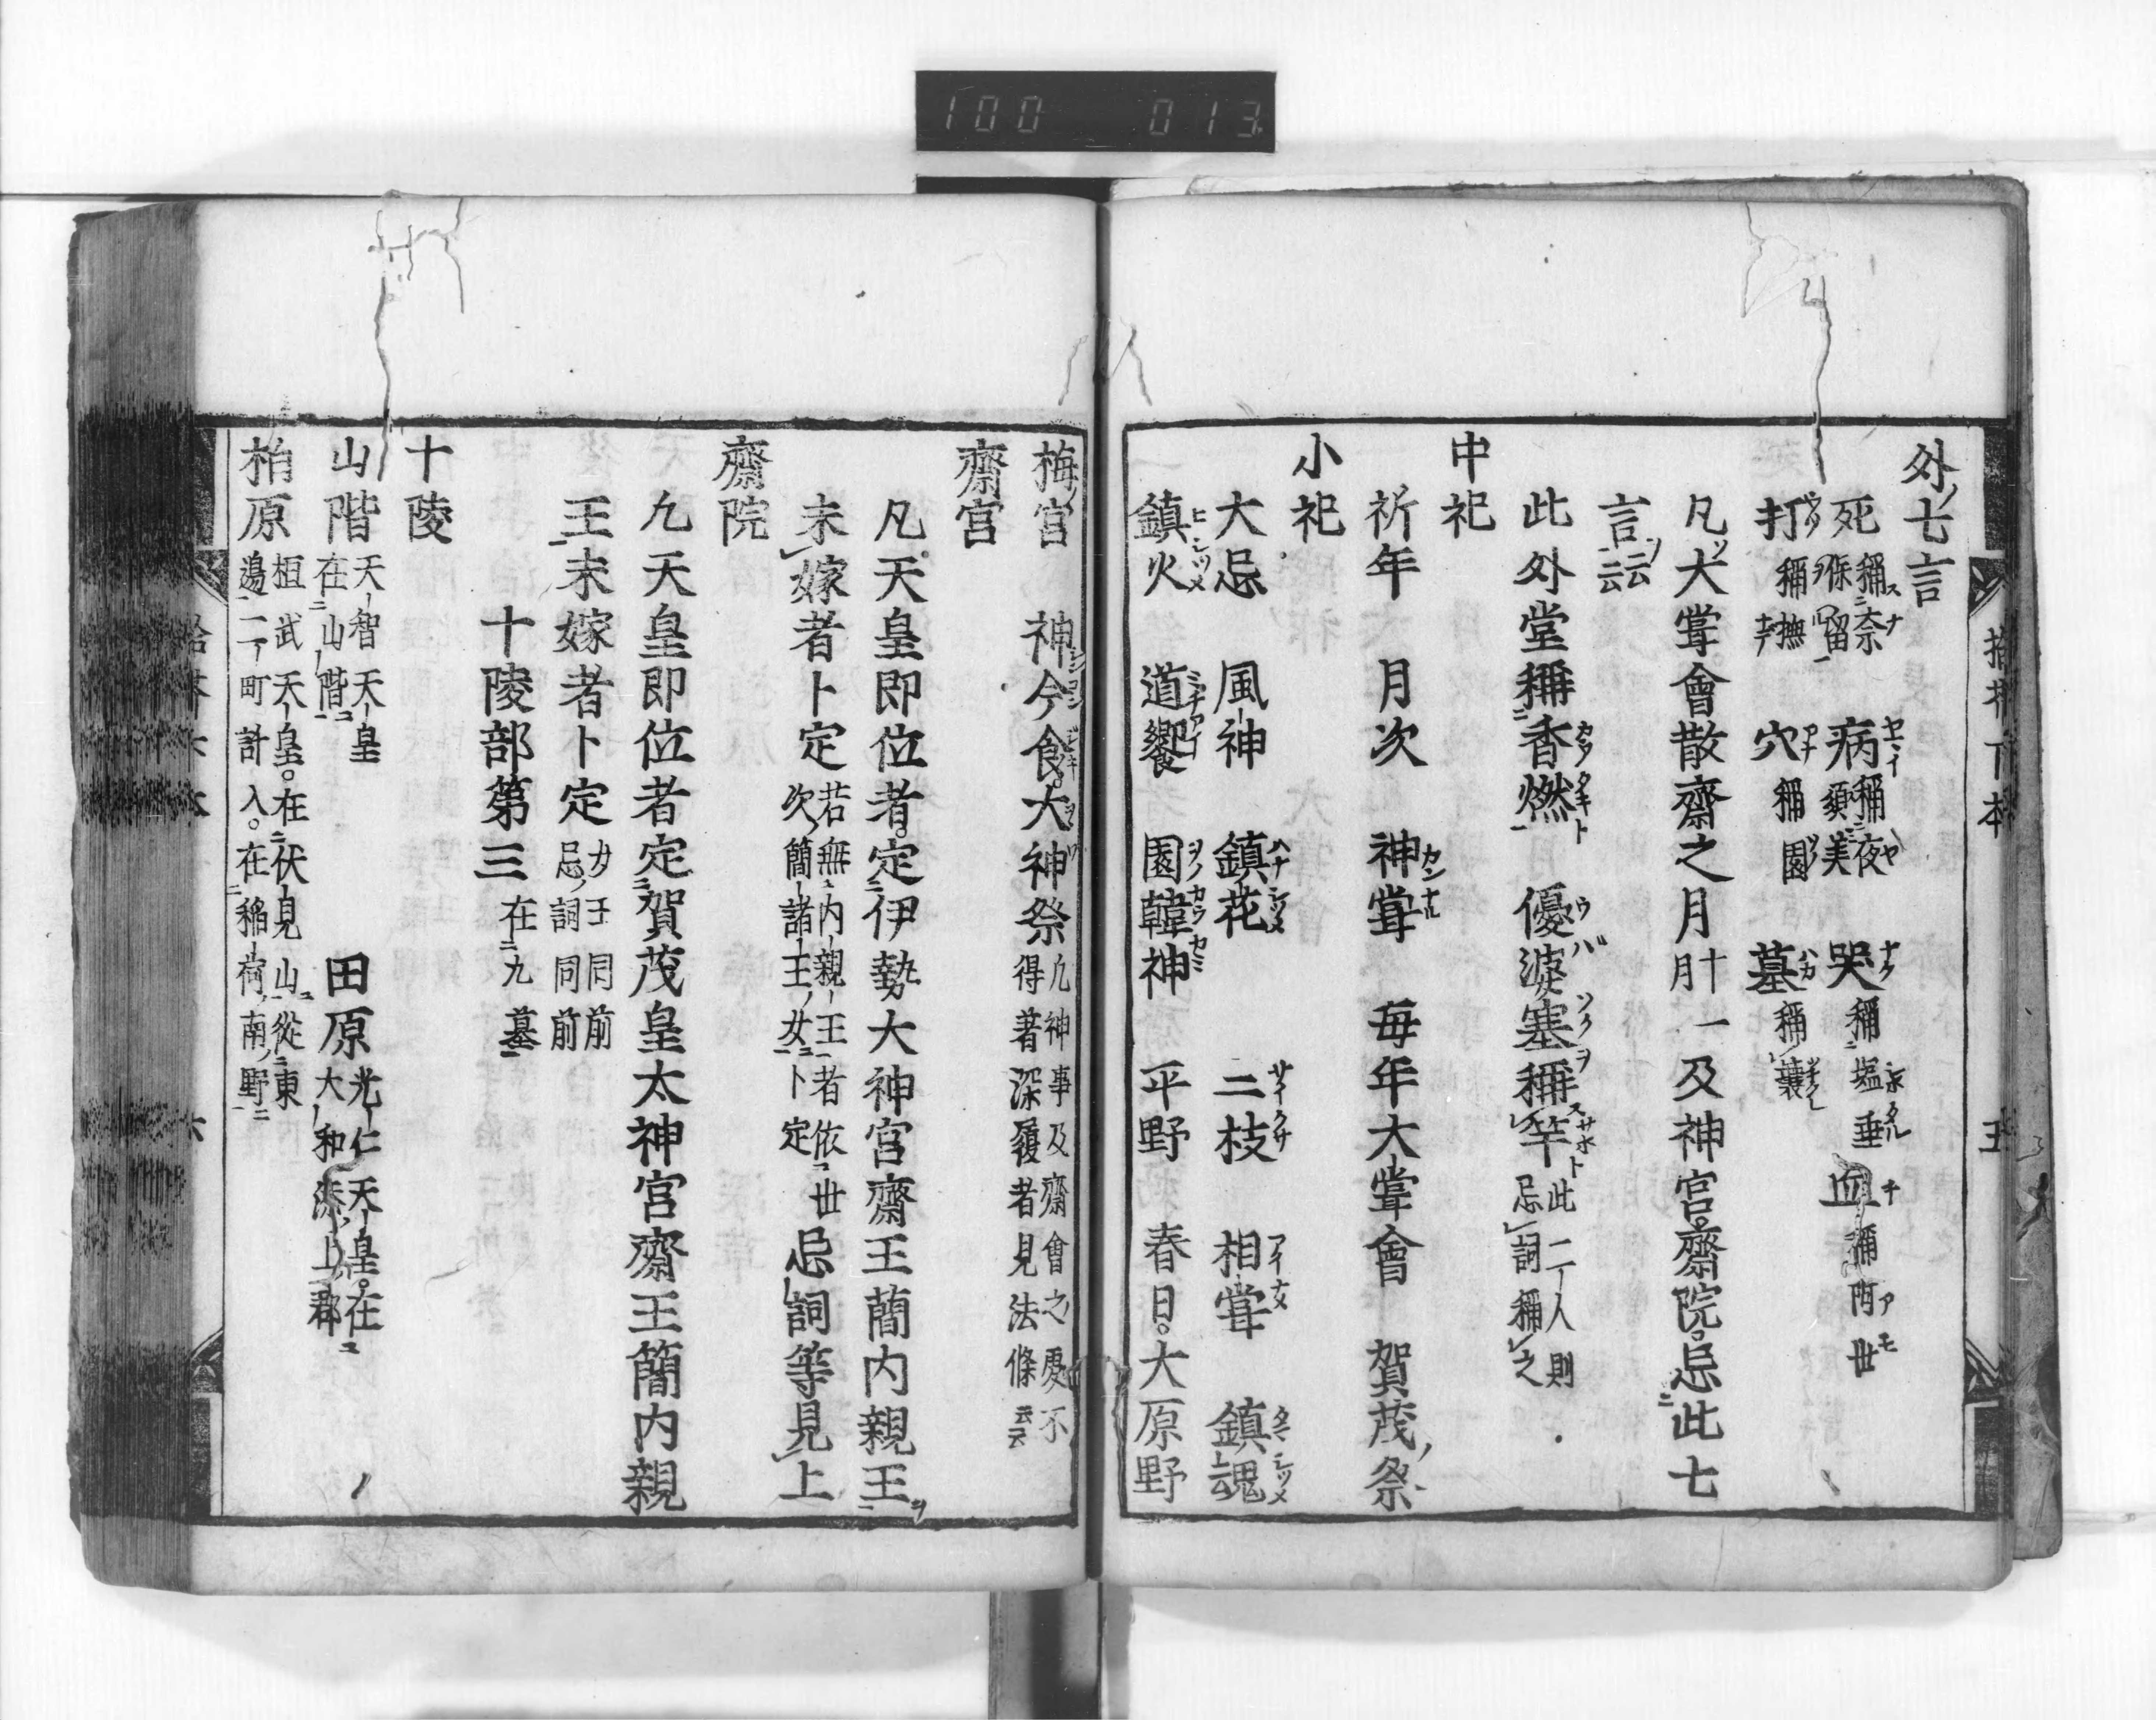 100 013
外七言
死 稱奈保留 病 稱夜須美 哭 稱塩垂 血 稱阿世
打 稱撫 穴 稱園 墓 稱壤
凡大甞會散齋之月十一月及神官齋院忌此七
言云云
此外堂稱香燃 優婆塞稱竿 此二人則忌詞稱之
中祀
祈年 月次 神甞 毎年大甞會 賀茂祭
小祀
大忌 風神 鎮花 三枝 相甞 鎮魂
鎮火 道饗 園韓神 平野 春日 大原野
梅宮 神今食 大神祭 凡神事及齋會之處不得著深履者見法條云云
齋宮
凡天皇即位者定伊勢大神宮齋王簡内親王
未嫁者卜定 若無内親王者依世次簡諸王女卜定 忌詞等見上
齋院
凡天皇即位者定賀茂皇太神宮齋王簡内親
王未嫁者卜定 女王同前忌詞同前
十陵部第三 在九墓
十陵
山階 天智天皇在山階 田原 光仁天皇在大和添上郡
柏原 桓武天皇在伏見山從東邉二町計入在稲荷南野